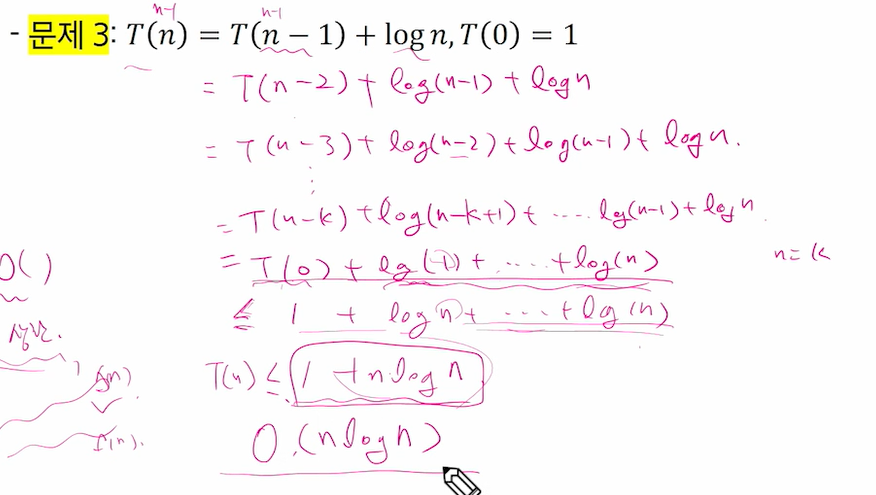 n-1 n-1
- 문제 3: T(n) = T(n − 1) + log n, T(0) = 1
= T(n-2) + log(n-1) + logn
= T(n-3) + log(n-2) + log(n-1) + logn.
⋮
= T(n-k) + log(n-k+1) + ···· lg(n-1) + logn.
= T(0) + lg(1) + ···· + log(n) n=k
≤ 1 + logn + ··· + lg(n)
T(n) ≤ 1 + n·logn
O(nlogn)
O( )
상한.
g(n)
f(n).